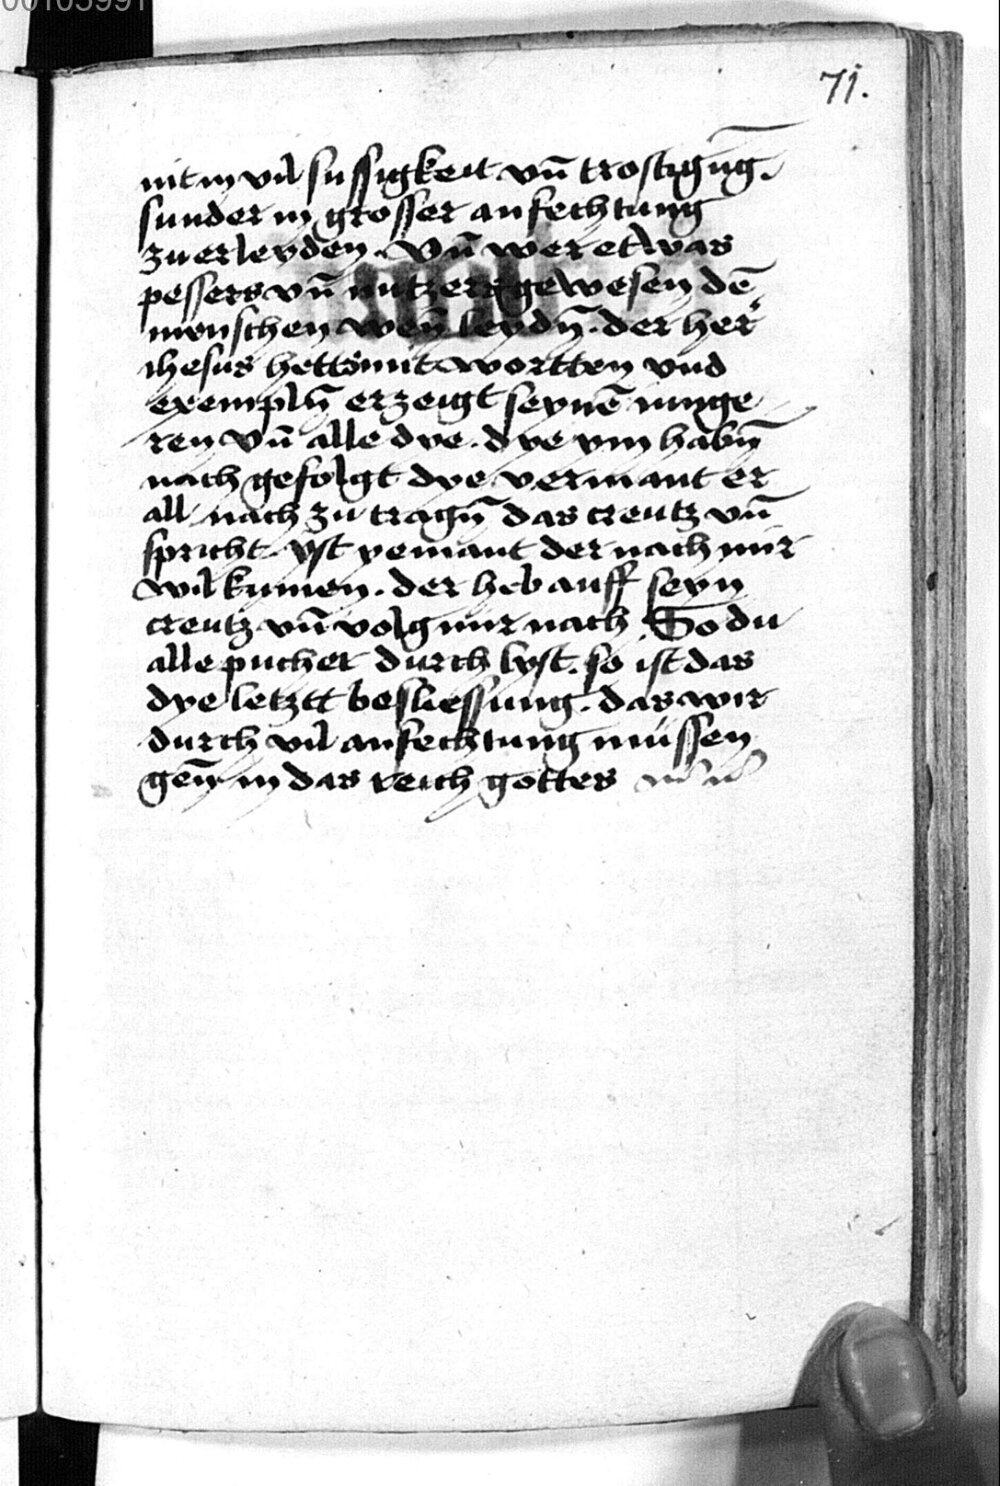 00105991
71.
nit in vil sussigkeit vn̄ trostigūg.
sunder in grosser anfechtung
zu erleyden. Vn̄ wer etwas
pessers vn̄ nutzers gewesen dē
menschen wen̄ leydn̄. der her
ihesus hetts mit wortten vnd
exempln̄ erzeigt seynē iunge
ren vn̄ alle dye. dye ym habn̄
nach gefolgt dye vermant er
all nach zu tragn̄ das creutz vn̄
spricht. yst yemant der nach mir
wil kumen. der heb auff seyn
creutz vn̄ volg mir nach So du
alle pucher durch lyst. so ist das
dye letztt besliessung. das wir
durch vil anfechtung müssen
gen̄ in das reich gottes